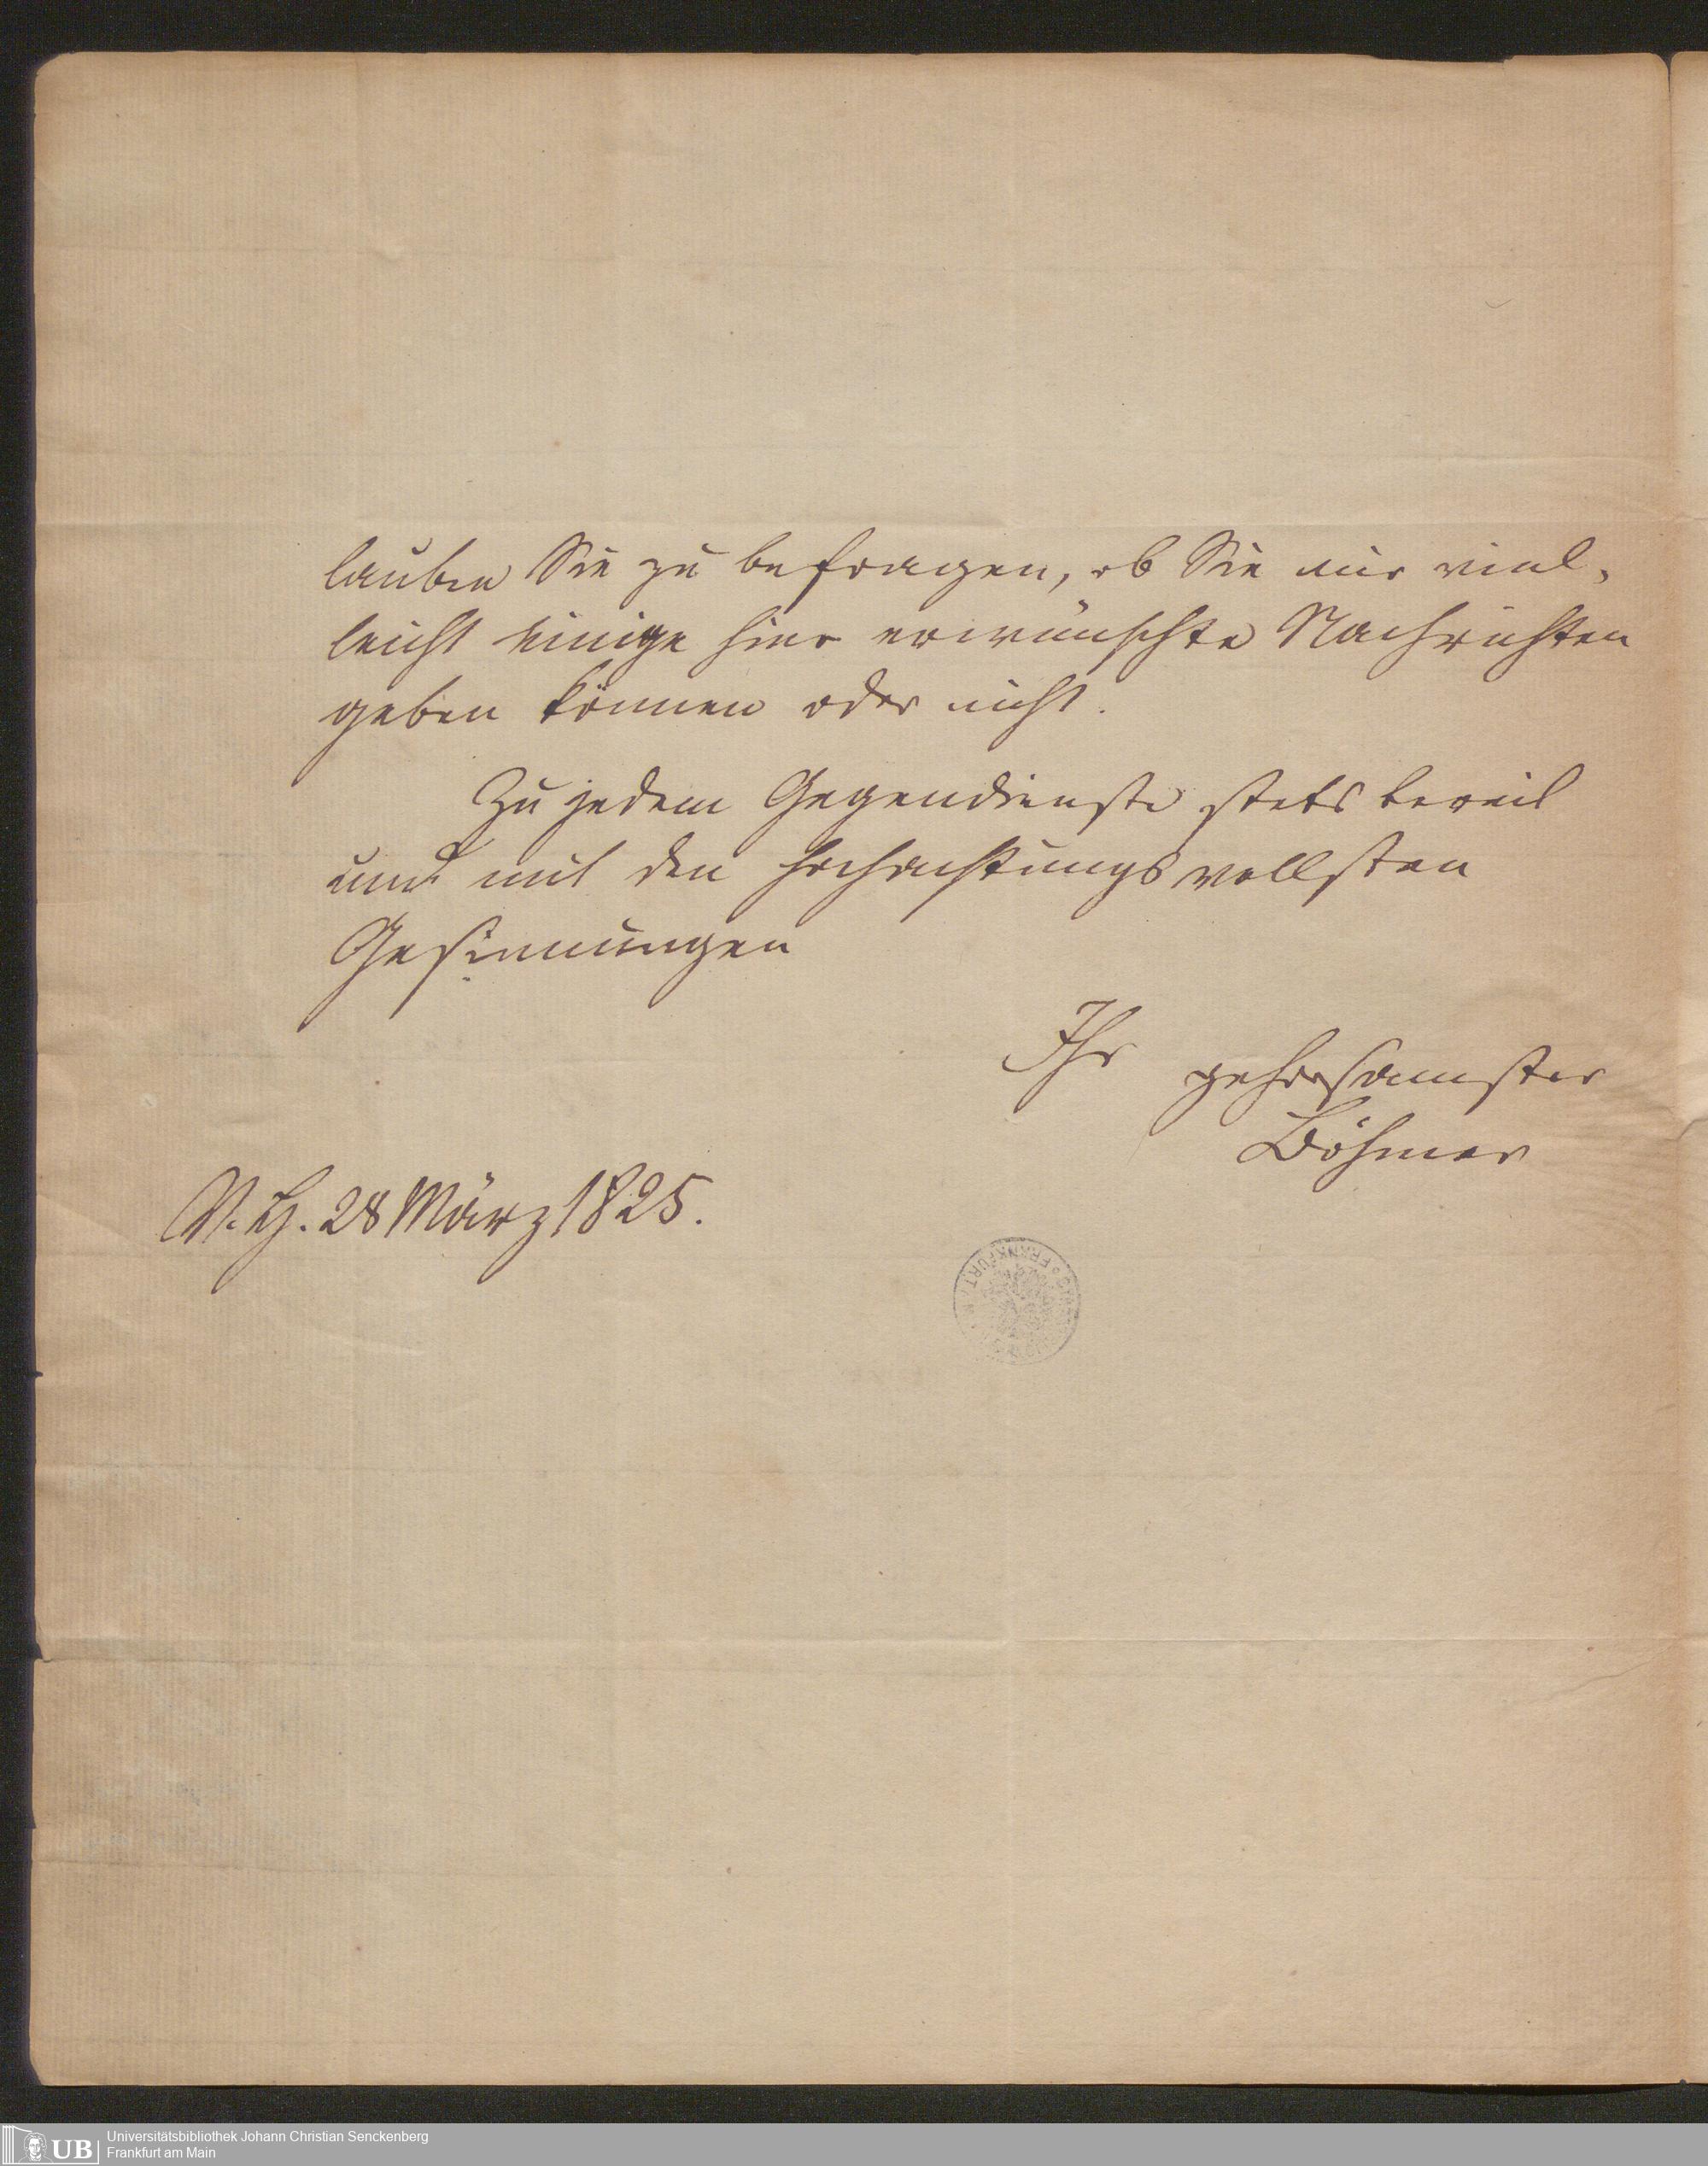 lauben Sie zu befragen, ob Sie mir viel-
leicht einige hier erwünschte Nachrichten
geben können oder nicht.
Zu jedem Gegendienste stets bereit
und mit den hochachtungsvollsten
Gesinnungen
Ihr gehorsamster
Böhmer
V. H. 28 März 1825.
FRANKFURT
UB
Universitätsbibliothek Johann Christian Senckenberg
Frankfurt am Main